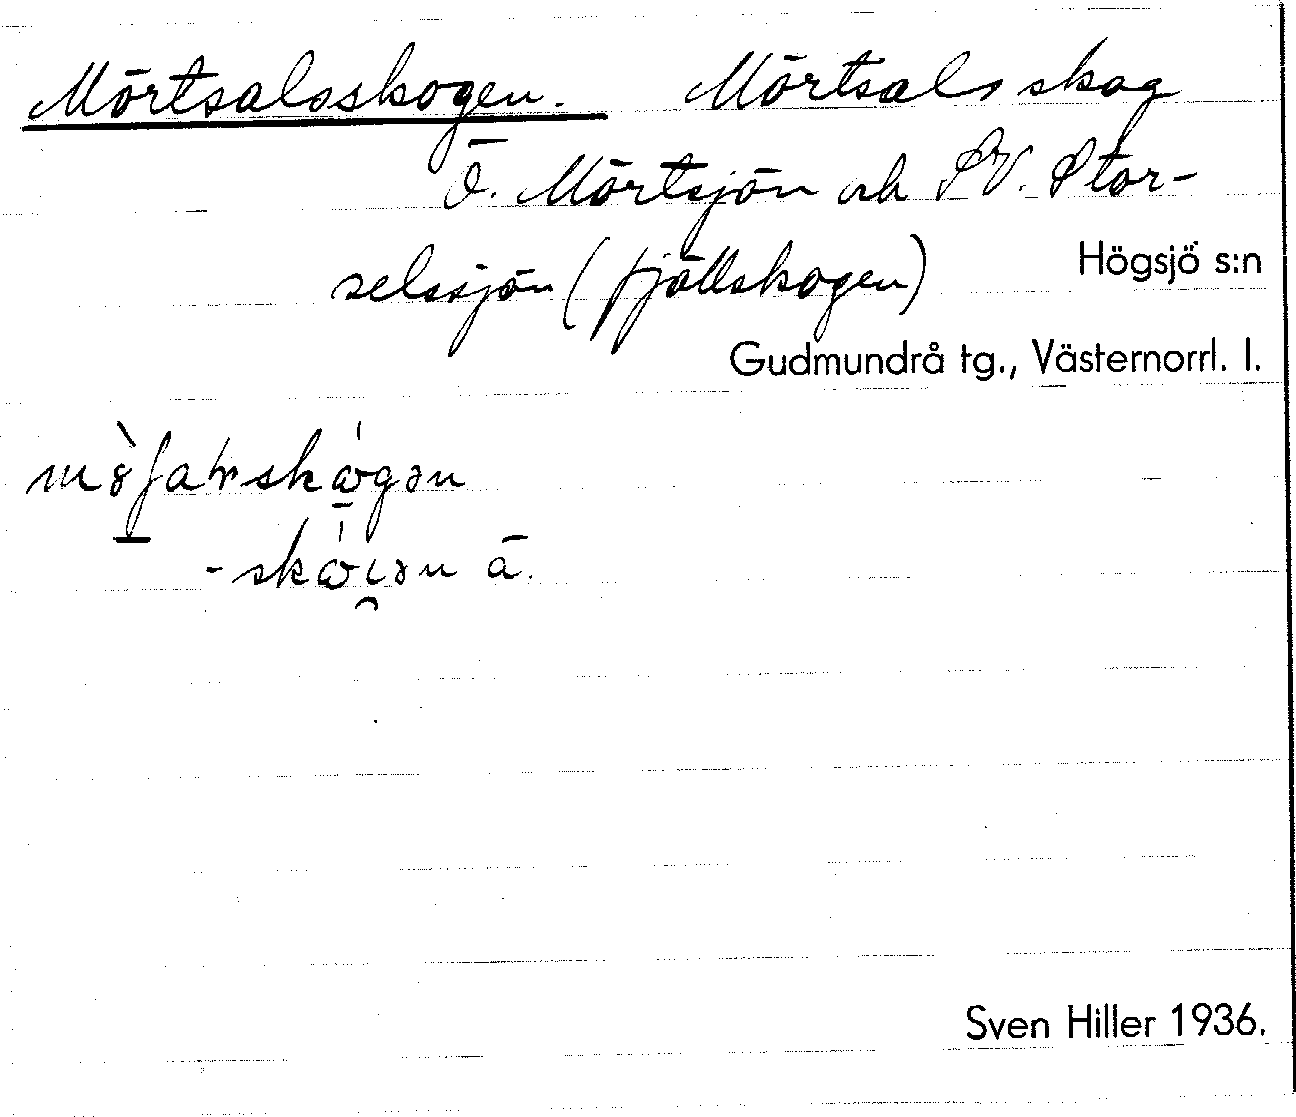 Mörtsalsskogen. Mörtsals skog
Ö. Mörtsjön och SV. Stor-
selssjön (fjällskogen)
Högsjö s:n
Gudmundrå tg., Västernorrl. l.
-skὼɩ̯ən ä.
Sven Hiller 1936.